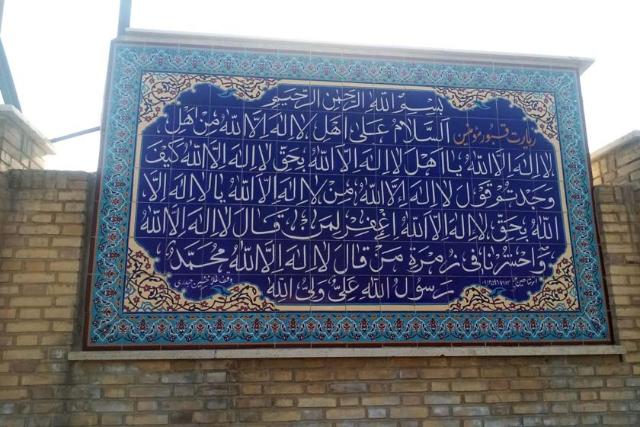 بسم الله الرحمن الرحیم
زیارت قبور مؤمنین
السلام علی اهل لا اله الا الله من اهل
لا اله الا الله یا اهل لا اله الا الله بحق لا اله الا الله کیف
وجدتم قول لا اله الا الله من لا اله الا الله یا لا اله الا
الله بحق لا اله الا الله اغفر لمن قال لا اله الا الله
واحشرنا فی زمرة من قال لا اله الا الله محمد
رسول الله علی ولی الله